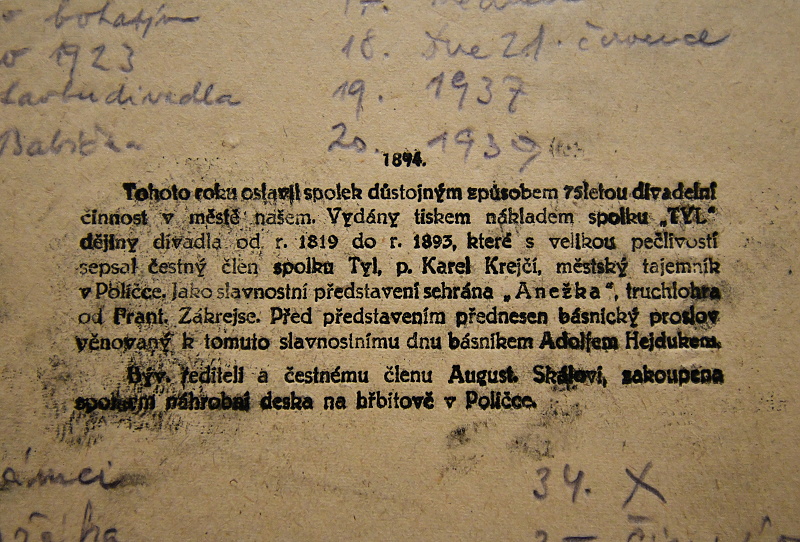 bohatým
17.
1923
18. Dne 21. července
divedla
19. 1937
Babička
20. 1939
1894.
Tohoto roku oslavil spolek důstojným způsobem 75letou divadelní
činnost v městě našem. Vydány tiskem nákladem spolku „TYL"
dějiny divadla od r. 1819 do r. 1893, které s velikou pečlivostí
sepsal čestný člen spolku Tyl, p. Karel Krejčí, městský tajemník
v Poličce. Jako slavnostní představení sehrána „Anežka", truchlohra
od Frant. Zákrejse. Před představením přednesen básnický proslov
věnovaný k tomuto slavnostnímu dnu básníkem Adolfem Hejdukem.
Býv. řediteli a čestnému členu August. Skálovi, zakoupena
spolkem náhrobní deska na hřbitově v Poličce.
34. X